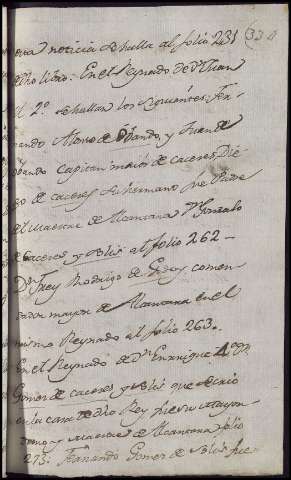 esta noticia se halla al folio 231 330
dicho libro: En el Reynado de Dn Juan
el 2º se hallan los siguientes Fer
nando Alonso de Obando, y Juan de
Obando Capitan maior de caceres, Die
go de caceres su hermano fue Padre
el Maestre de Alcantara Dn Gonzalo
de caceres y Solis al folio 262 —
Dn Frey Rodrigo de Godoy comen
dador mayor de Alcantara en el
mismo Reynado al folio 263.
En el Reynado de Dn Enrrique 4º
Gomez de caceres y Solis que se crio
en la casa del Rey fue su Mayor
domo y Maestre de Alcantara folio
273. Fernando Gomez de Solis fue